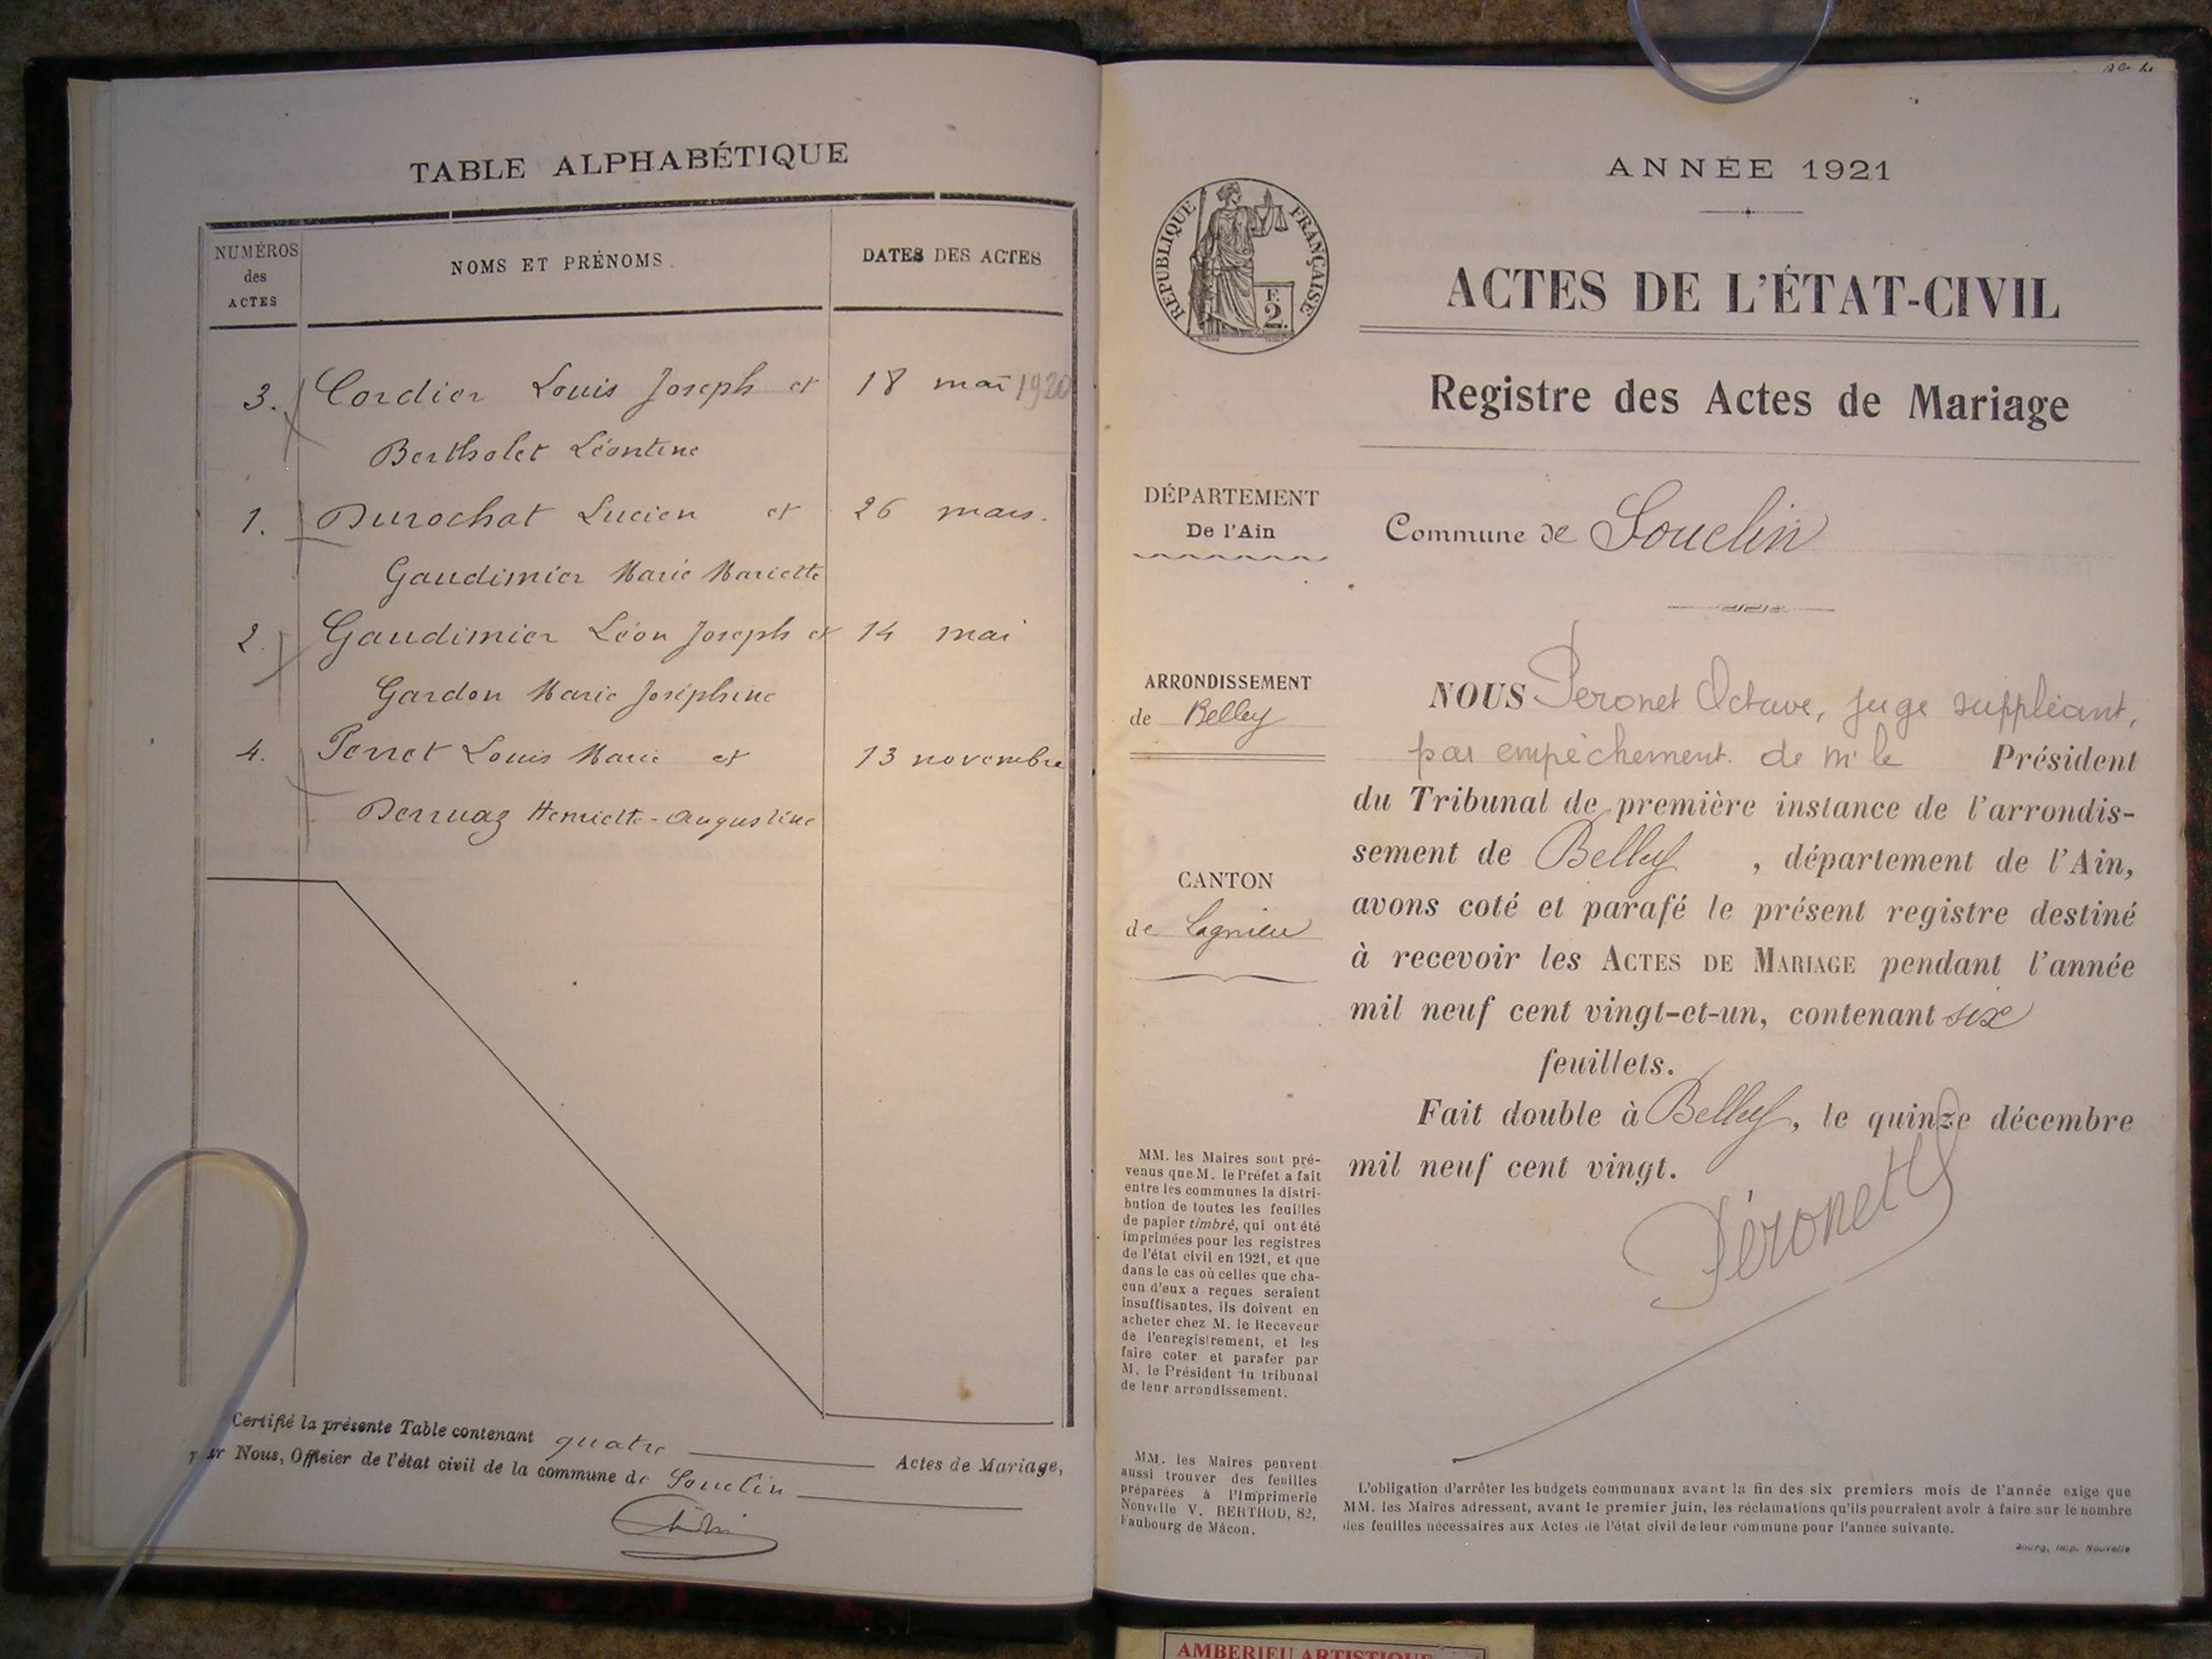 TABLE ALPHABÉTIQUE
NUMÉROS
des
ACTES
NOMS ET PRÉNOMS.
DATES DES ACTES
3. Cordier Louis Joseph et 18 mai 1920
Bertholet Léontine
1. Durochat Lucien et 26 mars.
Gaudimier Marie Mariette
2. Gaudimier Léon Joseph et 14 mai
Gardon Marie Joséphine
4. Perret Louis Marie et 13 novembre
Derruaz Henriette-Augustine
Certifié la présente Table contenant quatre Actes de Mariage,
par Nous, Officier de l'état civil de la commune de Souclin
ANNÉE 1921
RÉPUBLIQUE FRANÇAISE
F.
2.
ACTES DE L'ÉTAT-CIVIL
Registre des Actes de Mariage
DÉPARTEMENT
De l'Ain
Commune de Souclin
ARRONDISSEMENT
de Belley
CANTON
de Lagnieu
NOUS Peronet Octave, juge suppléant,
par empêchement de Mr le Président
du Tribunal de première instance de l'arrondis-
sement de Belley, département de l'Ain,
avons coté et parafé le présent registre destiné
à recevoir les ACTES DE MARIAGE pendant l'année
mil neuf cent vingt-et-un, contenant six
feuillets.
Fait double à Belley, le quinze décembre
mil neuf cent vingt.
Péronet
MM. les Maires sont pré-
venus que M. le Préfet a fait
entre les communes la distri-
bution de toutes les feuilles
de papier timbré, qui ont été
imprimées pour les registres
de l'état civil en 1921, et que
dans le cas où celles que cha-
cun d'eux a reçues seraient
insuffisantes, ils doivent en
acheter chez M. le Receveur
de l'enregistrement, et les
faire coter et parafer par
M. le Président du tribunal
de leur arrondissement.
MM. les Maires peuvent
aussi trouver des feuilles
préparées à l'Imprimerie
Nouvelle V. BERTHOD, 82,
Faubourg de Mâcon.
L'obligation d'arrêter les budgets communaux avant la fin des six premiers mois de l'année exige que
MM. les Maires adressent, avant le premier juin, les réclamations qu'ils pourraient avoir à faire sur le nombre
des feuilles nécessaires aux Actes de l'état civil de leur commune pour l'année suivante.
Bourg, Imp. Nouvelle
AMBERIEU ARTISTIQUE